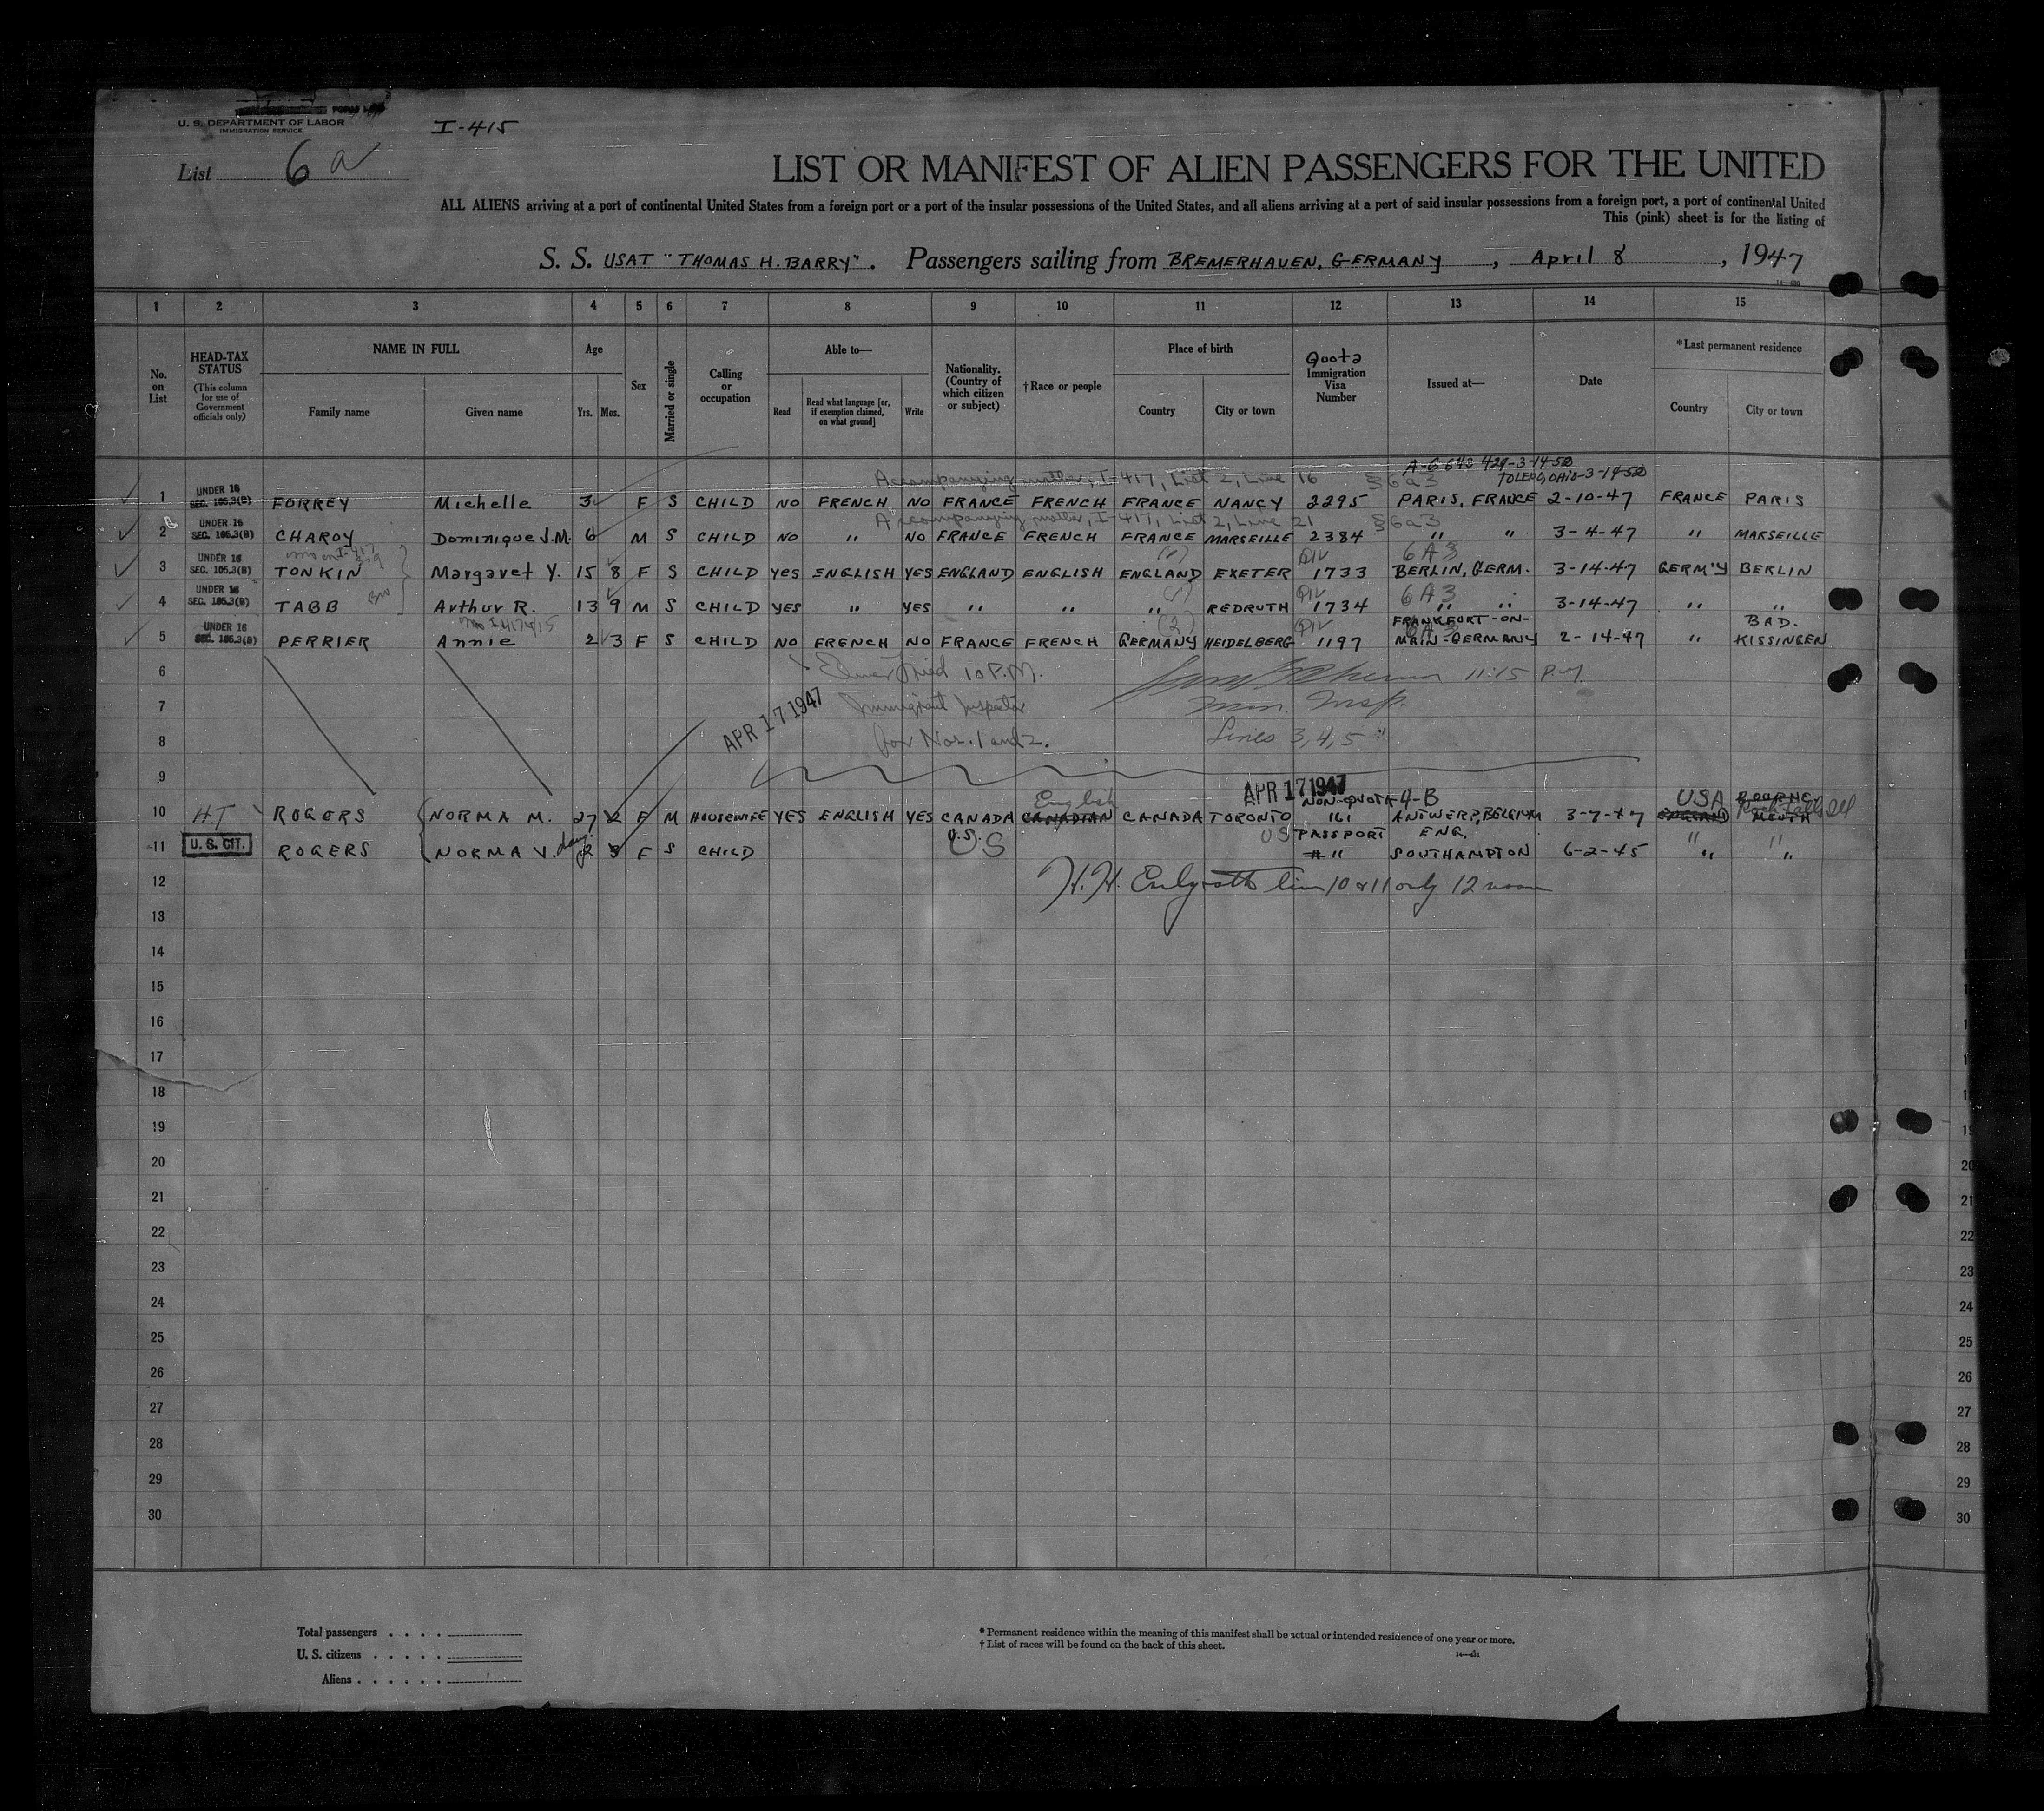 FORM I-
U. S. DEPARTMENT OF LABOR
IMMIGRATION SERVICE
I-415
List 6 a
LIST OR MANIFEST OF ALIEN PASSENGERS FOR THE UNITED
ALL ALIENS arriving at a port of continental United States from a foreign port or a port of the insular possessions of the United States, and all aliens arriving at a port of said insular possessions from a foreign port, a port of continental United
This (pink) sheet is for the listing of
S. S. USAT "THOMAS H. BARRY". Passengers sailing from BREMERHAVEN, GERMANY, April 8, 1947
1 2 3 4 5 6 7 8 9 10 11 12 13 14 15
No. on List
HEAD-TAX STATUS
(This column for use of Government officials only)
NAME IN FULL
Family name
Given name
Age
Yrs. Mos.
Sex
Married or single
Calling or occupation
Able to—
Read
Read what language [or, if exemption claimed, on what ground]
Write
Nationality. (Country of which citizen or subject)
†Race or people
Place of birth
Country
City or town
Quota
Immigration Visa Number
Issued at—
Date
*Last permanent residence
Country
City or town
A-6 648 429-3-14-52
Accompanying mother, I-417, List 2, Line 16 §6a3 TOLEDO, OHIO-3-14-52
1 UNDER 16 SEC. 105.3(B) FORREY Michelle 3 F S CHILD NO FRENCH NO FRANCE FRENCH FRANCE NANCY 2295 PARIS, FRANCE 2-10-47 FRANCE PARIS
Accompanying mother, I-417, List 2, Line 21 §6a3
2 UNDER 16 SEC. 105.3(B) CHAROY Dominique J.M. 6 M S CHILD NO " NO FRANCE FRENCH FRANCE MARSEILLE 2384 " " 3-4-47 " MARSEILLE
QIV 6A3
3 UNDER 16 SEC. 105.3(B) TONKIN Margaret Y. 15 8 F S CHILD YES ENGLISH YES ENGLAND ENGLISH ENGLAND EXETER 1733 BERLIN, GERM. 3-14-47 GERM'Y BERLIN
QIV 6A3
4 UNDER 16 SEC. 105.3(B) TABB Bro Arthur R. 13 9 M S CHILD YES " YES " " " REDRUTH 1734 " " 3-14-47 " "
(2) QIV 6A3
5 UNDER 16 SEC. 105.3(B) PERRIER Annie 2 3 F S CHILD NO FRENCH NO FRANCE FRENCH GERMANY HEIDELBERG 1197 FRANKFORT-ON-MAIN-GERMANY 2-14-47 " BAD. KISSINGEN
6 10 P.M. 11:15 P.M.
7 APR 17 1947 Immigrant Inspector Imm. Insp.
8 for Nos. 1 and 2. Lines 3, 4, 5
9
APR 17 1947
English NON-QUOTA 4-B USA
10 H.T ROGERS NORMA M. 27 2 F M HOUSEWIFE YES ENGLISH YES CANADA CANADIAN CANADA TORONTO 161 ANTWERP, BELGIUM 3-7-47 ENGLAND BOURNE MOUTH Rock Falls Ill
U.S. US PASSPORT ENG.
11 U. S. CIT. ROGERS NORMA V. dau 2 3 F S CHILD US # " SOUTHAMPTON 6-2-45 " "
12 H. H. line 10 & 11 only 12 noon
13
14
15
16
17
18
19 19
20 20
21 21
22 22
23 23
24 24
25 25
26 26
27 27
28 28
29 29
30 30
Total passengers
U. S. citizens
Aliens
* Permanent residence within the meaning of this manifest shall be actual or intended residence of one year or more.
† List of races will be found on the back of this sheet.